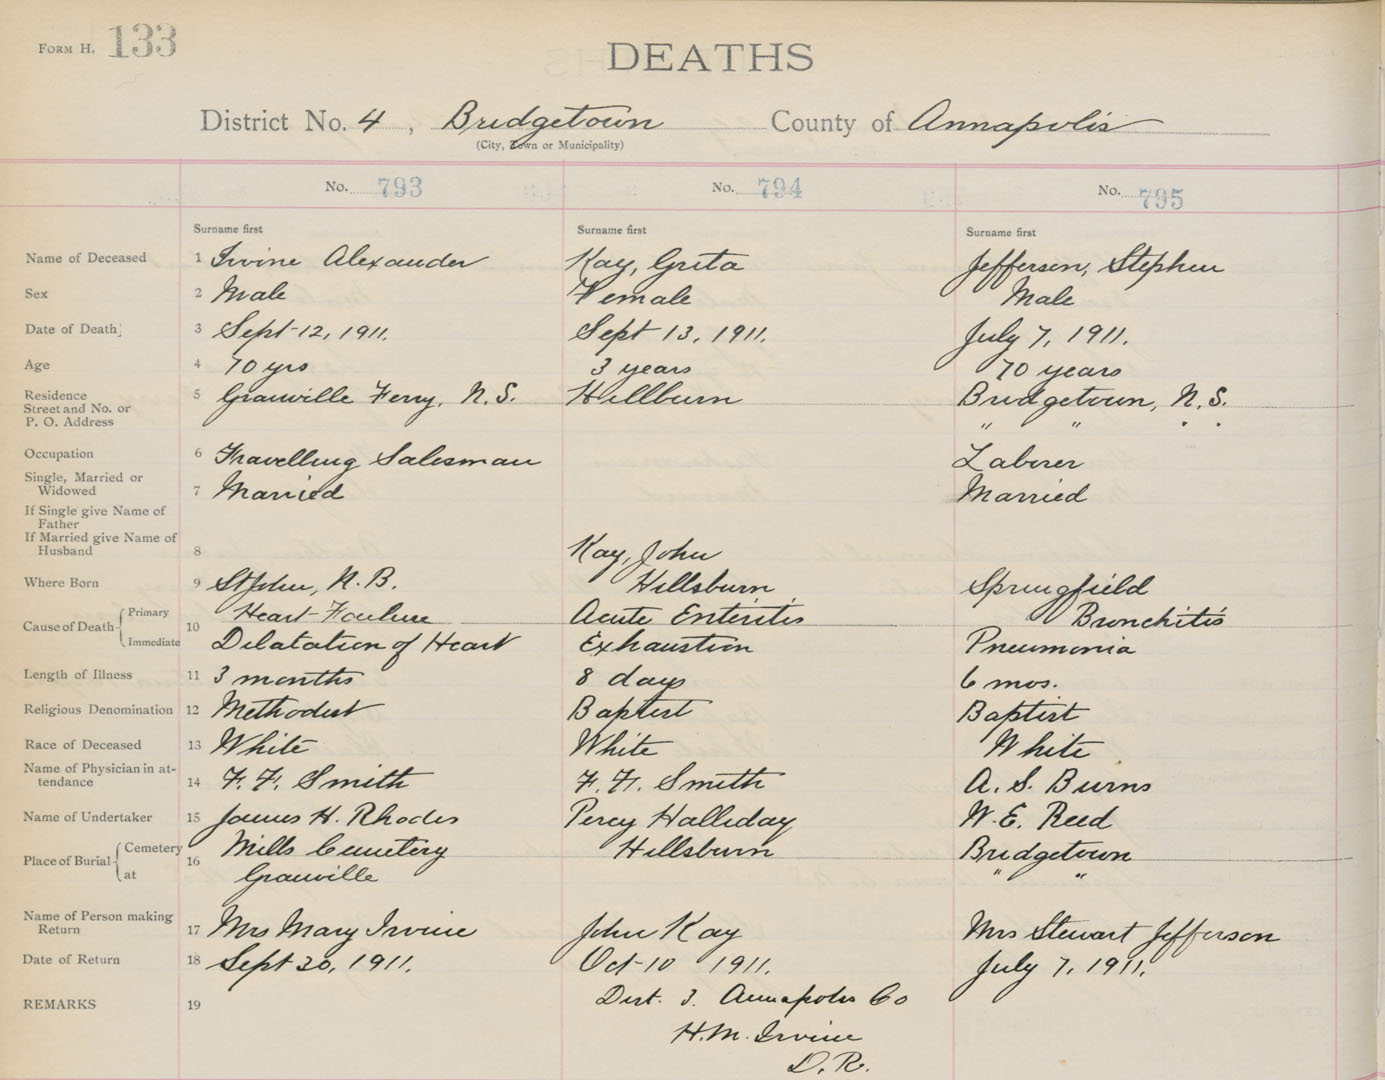 FORM H. 133
DEATHS
District No. 4, Bridgetown County of Annapolis
(City, Town or Municipality)
No. 793 No. 794 No. 795
Surname first Surname first Surname first
Name of Deceased 1 Irvine Alexander Kay, Greta Jefferson, Stephen
Sex 2 Male Female Male
Date of Death 3 Sept 12, 1911. Sept 13, 1911. July 7, 1911.
Age 4 70 yrs 3 years 70 years
Residence 5 Granville Ferry, N.S. Hillburn Bridgetown, N.S.
Street and No. or
P. O. Address " " " "
Occupation 6 Travelling Salesman Laborer
Single, Married or
Widowed 7 Married Married
If Single give Name of
Father
If Married give Name of
Husband 8 Kay, John
Where Born 9 St John, N.B. Hillsburn Springfield
Cause of Death Primary 10 Heart Failure Acute Enteritis Bronchitis
Immediate Dilatation of Heart Exhaustion Pneumonia
Length of Illness 11 3 months 8 days 6 mos.
Religious Denomination 12 Methodist Baptist Baptist
Race of Deceased 13 White White White
Name of Physician in at-
tendance 14 F. F. Smith F. F. Smith A. S. Burns
Name of Undertaker 15 James H. Rhodes Percy Halliday W. E. Reed
Place of Burial Cemetery 16 Mills Cemetery Hillsburn Bridgetown
at Granville " "
Name of Person making
Return 17 Mrs Mary Irvine John Kay Mrs Stewart Jefferson
Date of Return 18 Sept 30, 1911. Oct 10 1911. July 7, 1911.
REMARKS 19 Dist. 3. Annapolis Co
H. M. Irvine
D. R.